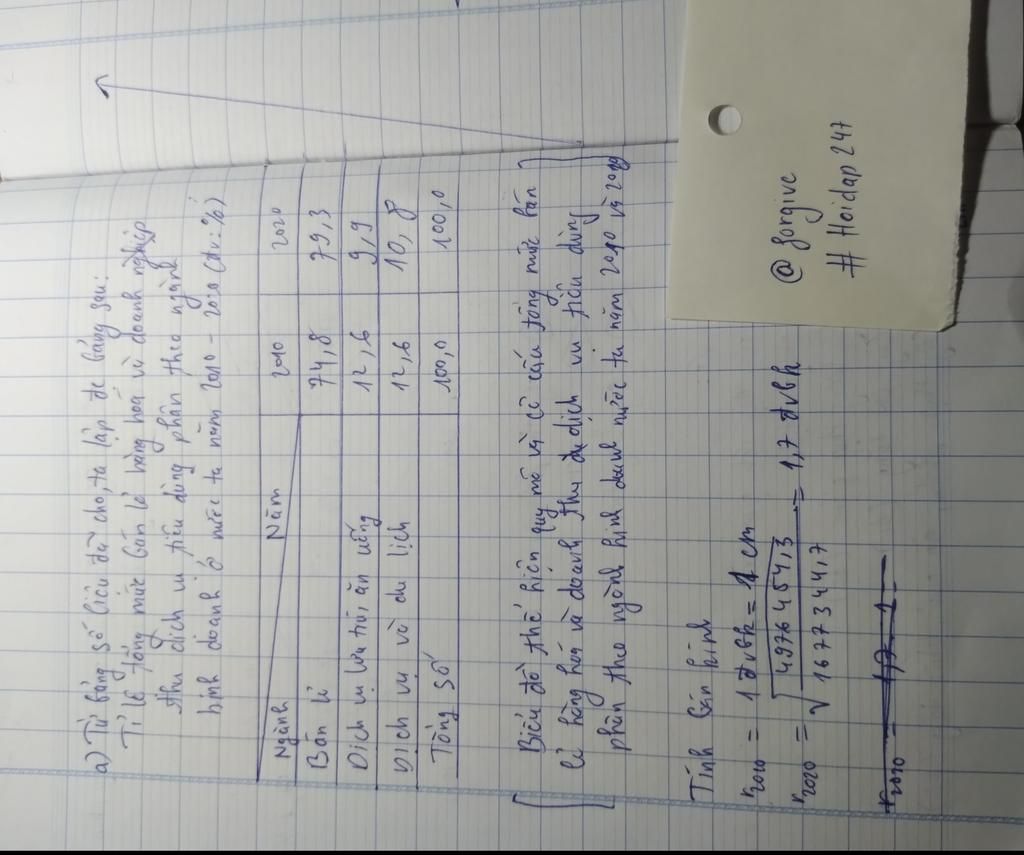 a) Từ bảng số liệu đã cho, ta lập đc bảng sau:
Tỉ lệ tổng mức bán lẻ hàng hoá và doanh nghiệp
thu dịch vụ tiêu dùng phân theo ngành
kinh doanh ở nước ta năm 2010 - 2020 (đv: %)
Ngành Năm 2010 2020
Bán lẻ 74,8 79,3
Dịch vụ lưu trú, ăn uống 12,6 9,9
Dịch vụ và du lịch 12,6 10,8
Tổng số 100,0 100,0
Biểu đồ thể hiện quy mô và cơ cấu tổng mức bán
lẻ hàng hoá và doanh thu dịch vụ tiêu dùng
phân theo ngành kinh doanh nước ta năm 2010 và 2020
Tính bán kính
r2010 = 1 đvbk = 1 cm
r2020 = √4976454,3 / 1677344,7 = 1,7 đvbk
r2020 = 1,7 . 1
@ forgive
# Hoidap 247